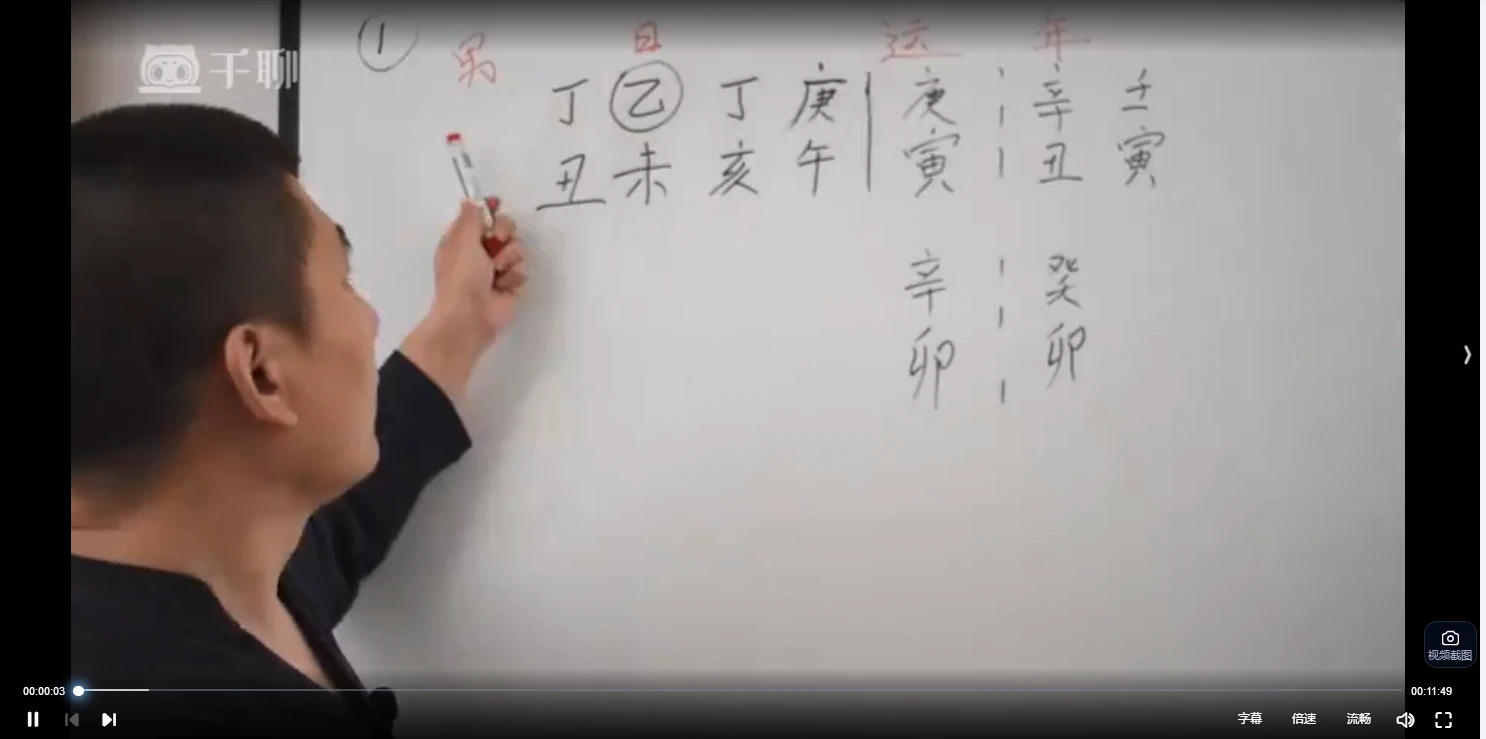 千聊
① 男 日 运 年
丁 乙 丁 庚 庚 辛 壬
丑 未 亥 午 寅 丑 寅
辛 癸
卯 卯
视频截图
00:00:03 00:11:49
字幕 倍速 流畅